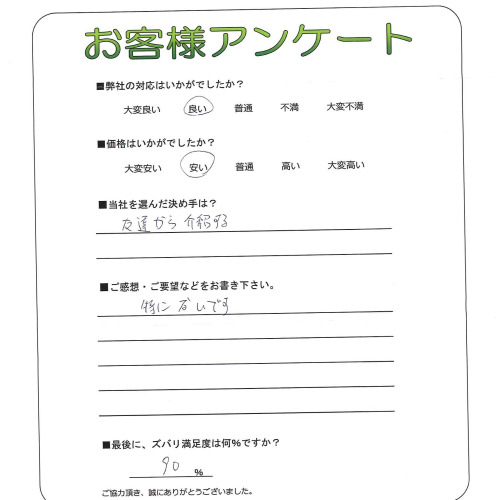 お客様アンケート
■弊社の対応はいかがでしたか？
大変良い 良い 普通 不満 大変不満
■価格はいかがでしたか？
大変安い 安い 普通 高い 大変高い
■当社を選んだ決め手は？
友達から 介紹する
■ご感想・ご要望などをお書き下さい。
特に ないです
■最後に、ズバリ満足度は何％ですか？
90 ％
ご協力頂き、誠にありがとうございました。